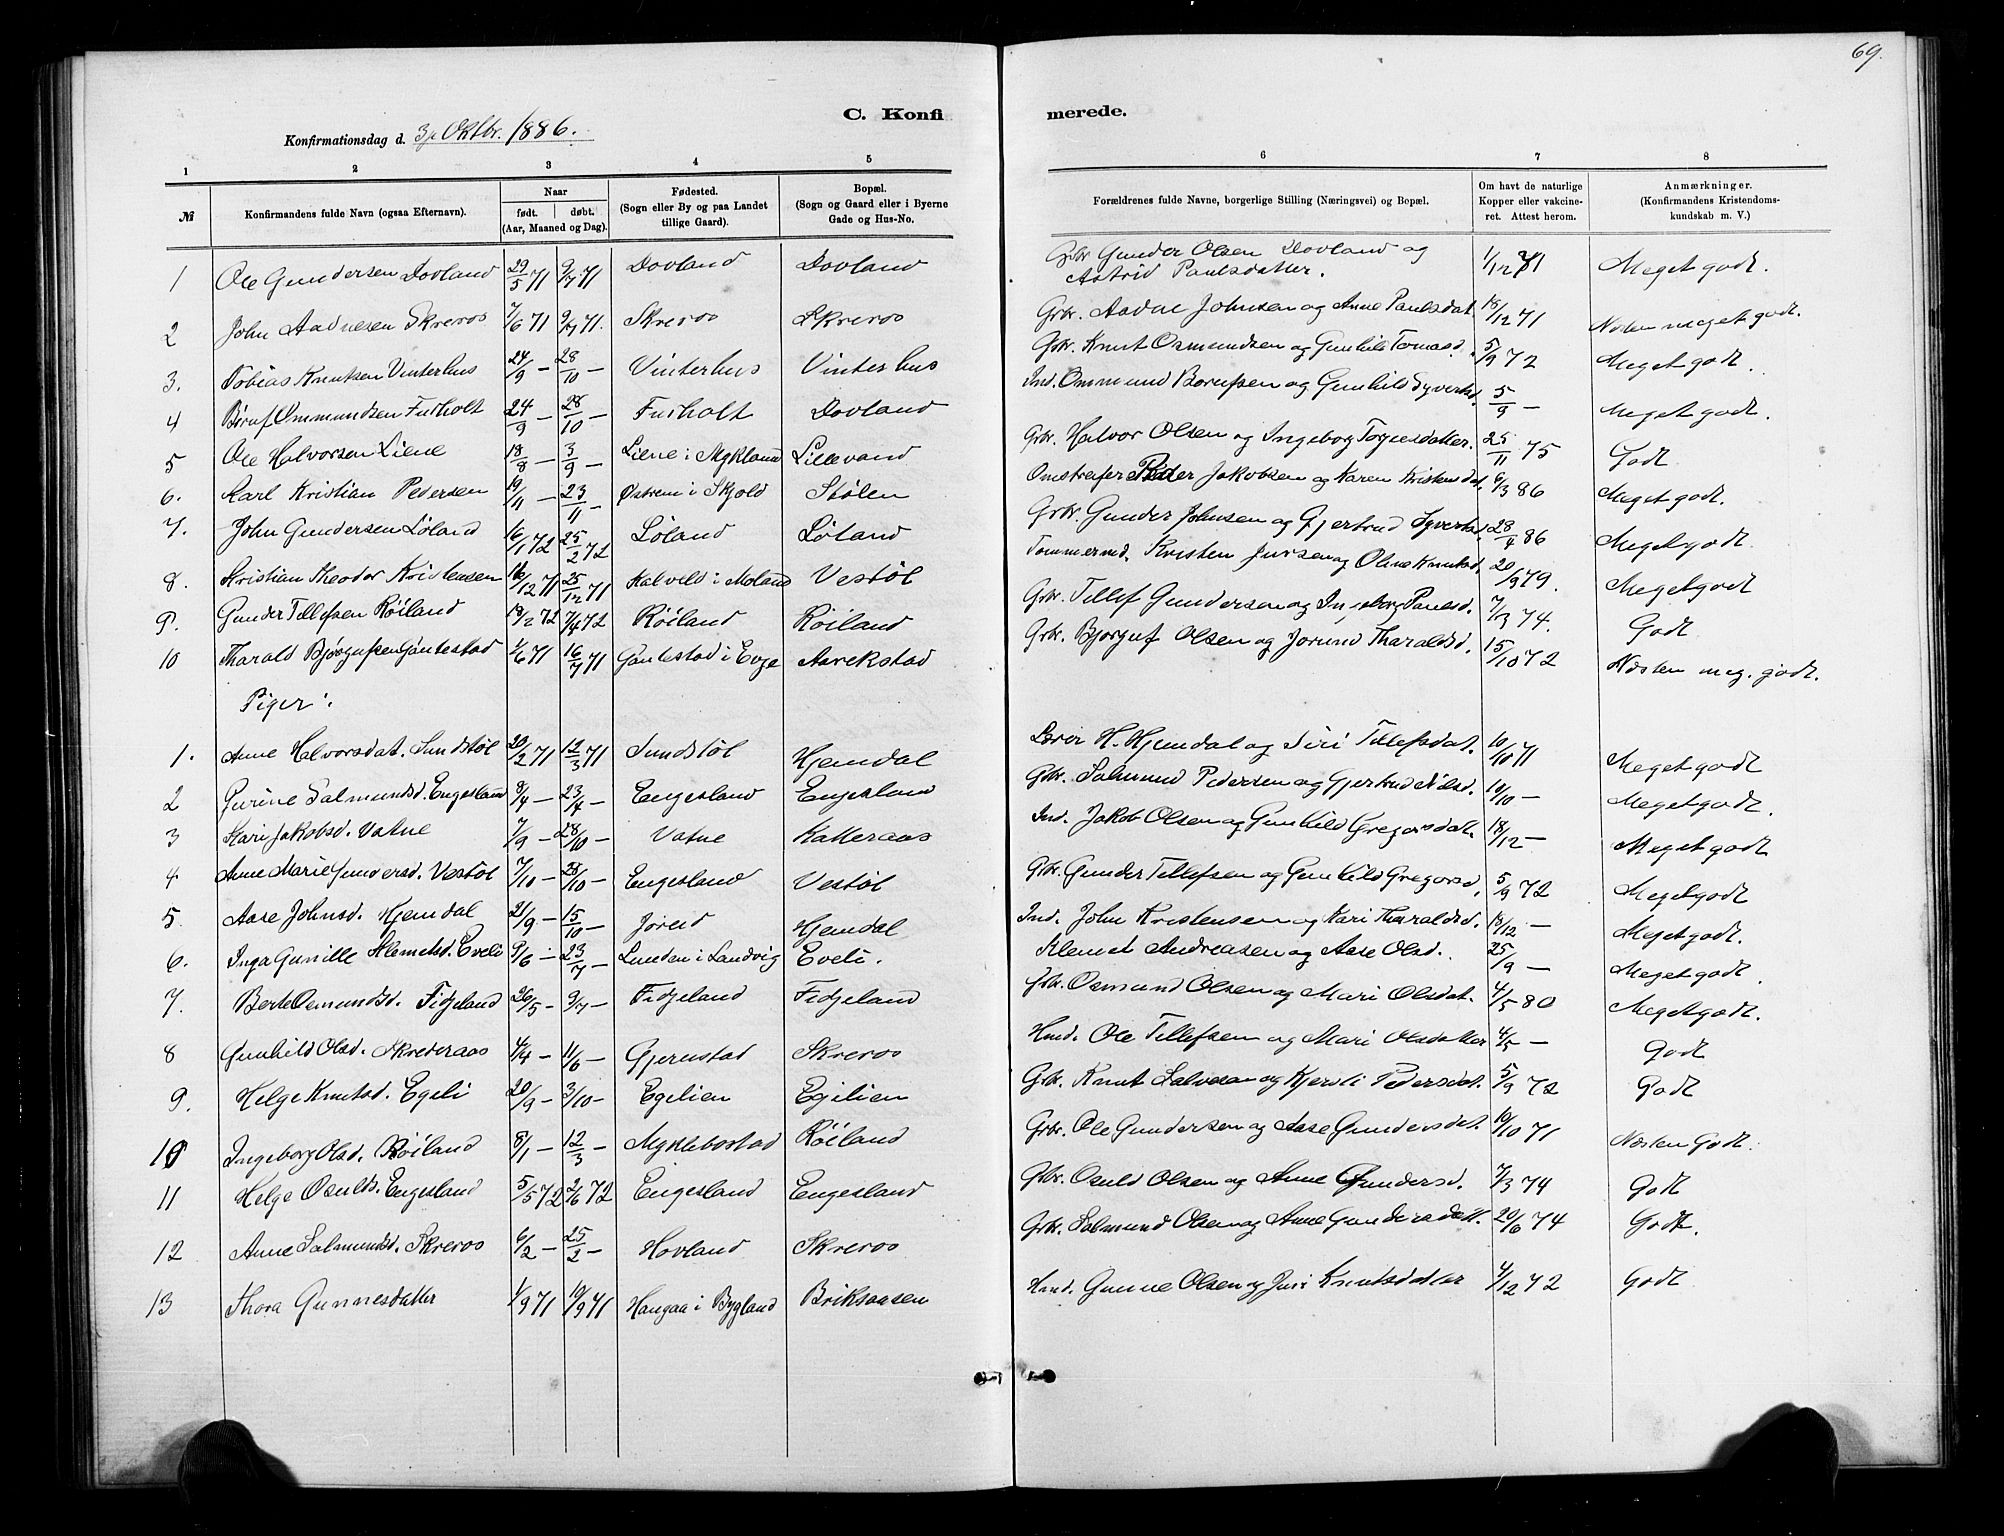 69.
C. Konfi merede.
Konfirmationsdag d. 3/ Oktbr. 1886.
1 2 3 4 5 6 7 8
№ Konfirmandens fulde Navn (ogsaa Efternavn). Naar født. døbt. (Aar, Maaned og Dag). Fødested. (Sogn eller By og paa Landet tillige Gaard). Bopæl. (Sogn og Gaard eller i Byerne Gade og Hus-No. Forældrenes fulde Navne, borgerlige Stilling (Næringsvei) og Bopæl. Om havt de naturlige Kopper eller vakcineret. Attest herom. Anmærkninger. (Konfirmandens Kristendomskundskab m. V.)
1 Ole Gundersen Dovland 29/5 71 9/7 71 Dovland Dovland Gbr. Gunder Olsen Dovland og Astrid Paulsdatter. 1/12 71 Meget godt.
2 John Aadnesen Skreros 7/6 71 9/7 71. Skreros Skreros Gbr. Aadne Johnsen og Anne Paulsdat. 18/12 71 Næsten meget godt.
3. Tobias Knutsen Vinterhus 24/9 — 28/10 — Vinterhus Vinterhus Gbr. Knut Osmundsen og Gunhild Tomasd. 5/9 72 Meget godt.
4 Ommundsen Furholt 24/9 — 28/10 — Furholt Dovland Ind. Ommund og Gunhild Syvertsd. 5/9 — Meget godt.
5 Ole Halvorsen Liene 18/8 — 3/9 — Liene i Mykland Lillevand Gbr. Halvor Olsen og Ingeborg Torjusdatter. 25/11 75 Godt
6. Karl Kristian Pedersen 19/11 — 23/11 — Østrem i Skjold Stølen Omstreifer Peder Jakobsen og Karen Kristensdat. 6/3 86 Meget godt.
7. John Gundersen Løland 16/1 72 25/2 72 Løland Løland Gbr. Gunder Johnsen og Gjertrud Syvertsd. 28/4 86 Meget godt.
8. Kristian Theodor Kristensen 16/12 71 25/12 71 Kalveld i Moland Vestøl Tømmermd. Kristen Jursen og Oline Knutsd. 20/9 79. Meget godt
9. Gunder Tellefsen Røiland 18/2 72 7/4 72 Røiland Røiland Gbr. Tellef Gundersen og Ingeborg Paulsd. 7/3 74. Godt
10 Tharald Bjørgufsen Gautestad 1/6 71 16/7 71 Gautestad i Evje Aarekstad Gbr. Bjørguf Olsen og Jorund Tharaldsd. 15/10 72 Næsten meg. godt.
Piger:
1. Anne Halvorsdat. Sundstøl 20/2 71 12/3 71 Sundstøl Hjemdal Lærer H. Hjemdal og Siri Tellefsdat. 10/10 71 Meget godt
2 Gurine Salmundsd. Engesland 8/4 — 23/4 — Engesland Engesland Gbr. Salmund Pedersen og Gjertrud Nilsd. 10/10 — Meget godt.
3 Kari Jakobsd. Vatne 7/9 — 28/10 — Vatne Katteraas Ind. Jakob Olsen og Gunhild Gregorsdat. 18/12 — Meget godt
4 Anne Marie Gundersd. Vestøl 7/10 — 28/10 — Engesland Vestøl Gbr. Gunder Tellefsen og Gunhild Gregorsd. 5/9 72 Meget godt
5 Aase Johnsd. Hjemdal 21/9 — 15/10 — Jørud Hjemdal Ind. John Kristensen og Kari Tharaldsd. 18/12 — Meget godt.
6. Inga Gunille Klemetsd. Eveli 9/6 — 23/7 — Lunden i Landvig Eveli. Klemet Andreasen og Aase Olsd. 25/9 — Meget godt.
7. Berte Osmundsd. Fidjeland 26/5 — 9/7 — Fidjeland Fidjeland Gbr. Osmund Olsen og Mari Olsdat. 4/5 80 Meget godt.
8 Gunhild Olsd. Skrederaas 4/4 — 11/6 — Gjerustad Skreros Hmd. Ole Tellefsen og Mari Olsdatter 4/5 — Godt
9. Helge Knutsd. Egeli 20/9 — 3/10 — Egelien Egilien Gbr. Knut Salvesen og Kjersti Pedersdat. 5/9 72 Godt
10 Ingeborg Olsd. Røiland 8/1 — 12/3 — Myklebostad Røiland Gbr. Ole Gundersen og Aase Gundersdat. 10/10 71 Næsten Godt.
11 Helge Osulds. Engesland 5/5 72 2/6 72 Engesland Engesland Gbr. Osuld Olsen og Anne Gundersd. 7/3 74 Godt
12 Anne Salmundsd. Skreros 6/2 — 25/2 — Hovland Skreros Gbr. Salmund Olsen og Anne Gundersdatt. 20/6 74 Godt.
13 Thora Gunnesdatter 1/9 71 10/9 71 Haugaa i Bygland Briksaasen Hmd. Gunne Olsen og Juri Knutsdatter 4/12 72 Godt